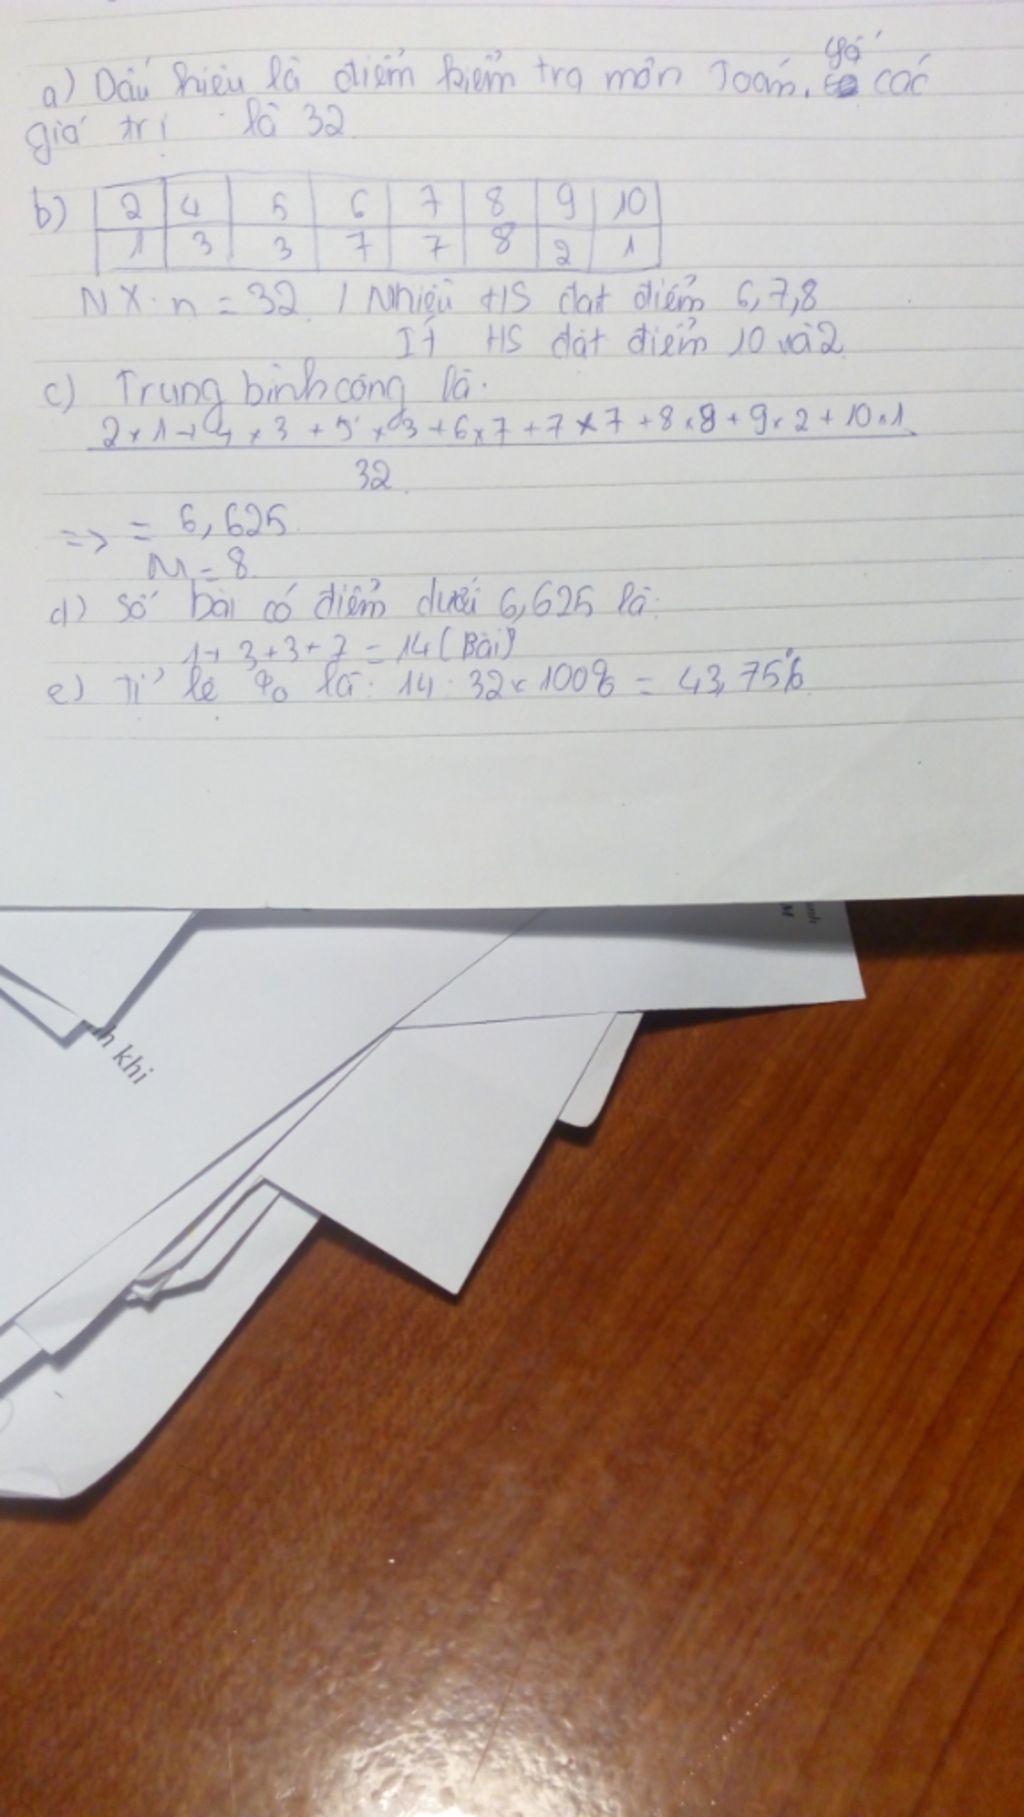 a) Dấu hiệu là điểm kiểm tra môn Toán. Số các
giá trị là 32
b) 2 4 5 6 7 8 9 10
1 3 3 7 7 8 2 1
NX: n = 32 / Nhiều HS đạt điểm 6,7,8
Ít HS đạt điểm 10 và 2
c) Trung bình cộng là:
2 x 1 + 4 x 3 + 5 x 3 + 6 x 7 + 7 x 7 + 8 x 8 + 9 x 2 + 10 x 1
32
=> = 6,625
M = 8
d) Số bài có điểm dưới 6,625 là:
1 + 3 + 3 + 7 = 14 (Bài)
e) Tỉ lệ % là: 14 : 32 x 100% = 43,75%
nh khi